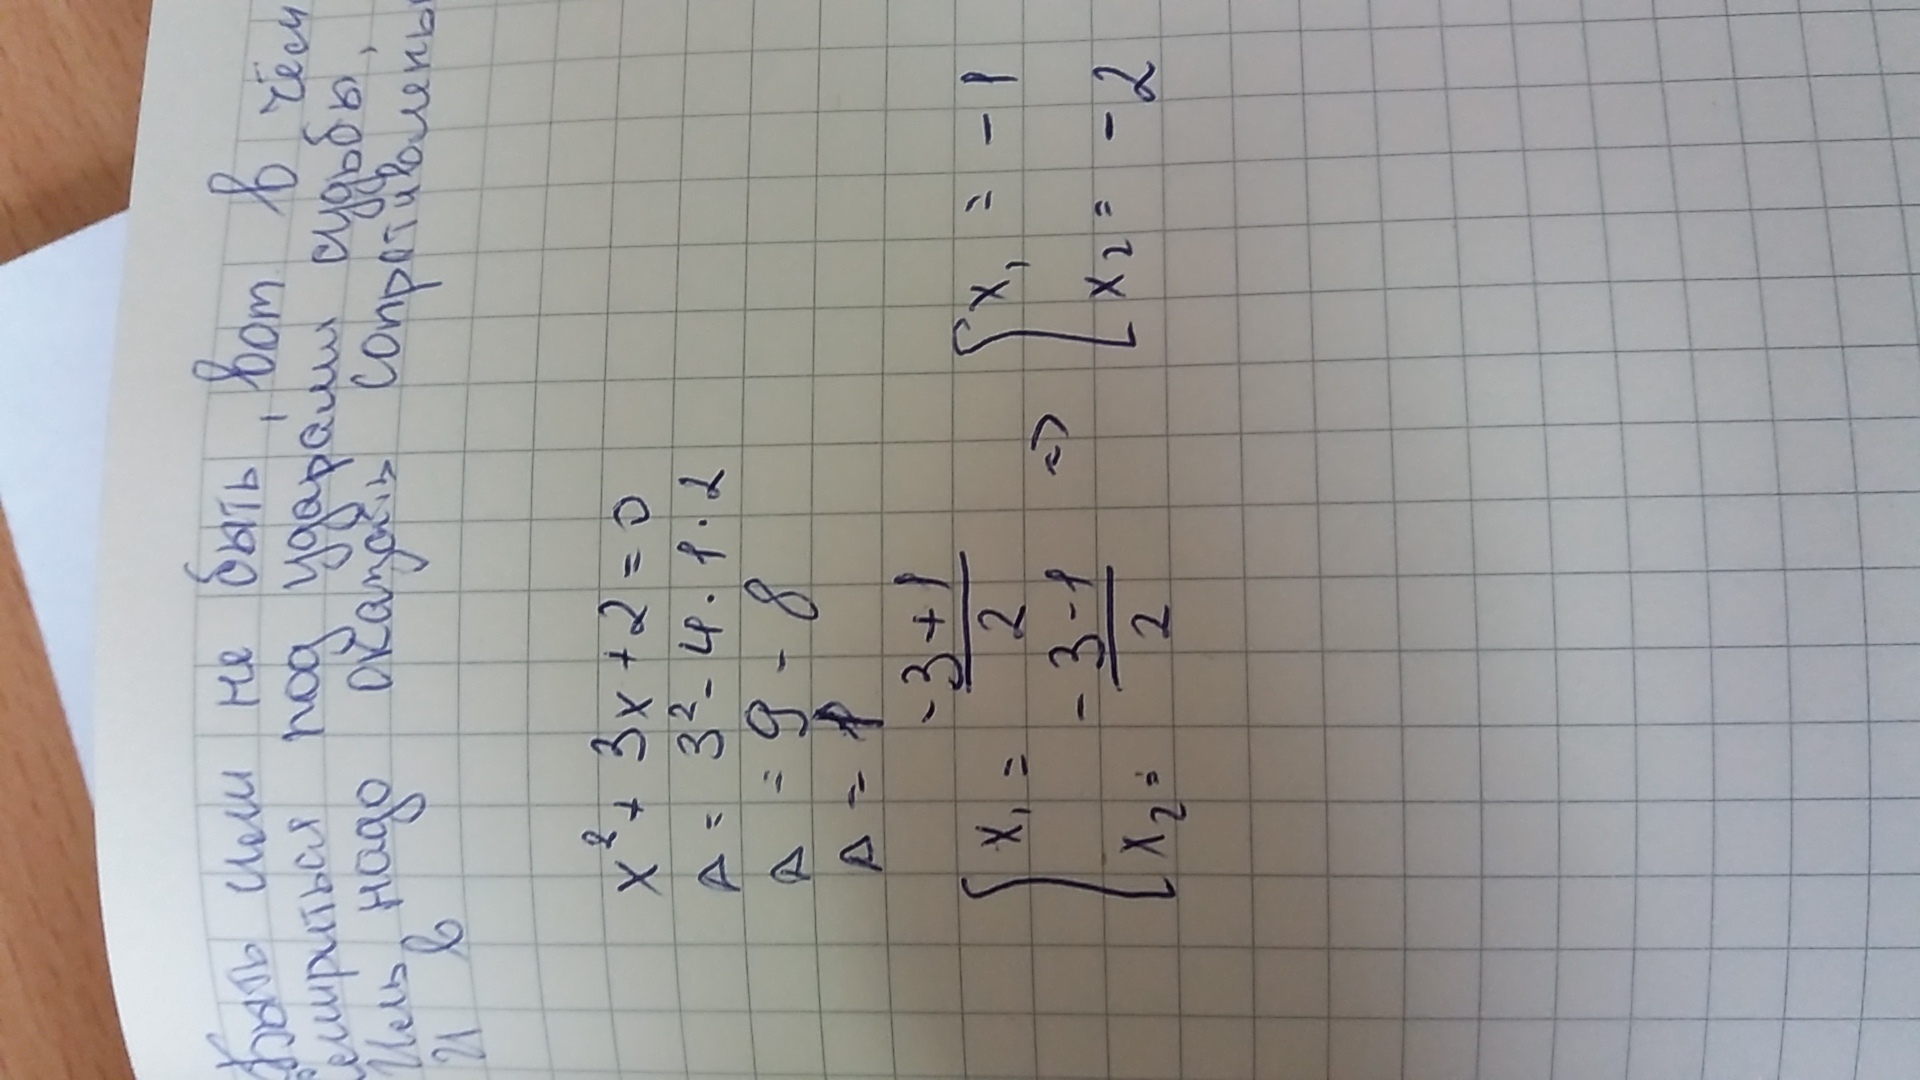 Быть или не быть, вот в чём
смириться под ударами судьбы,
Иль надо оказать сопротивлень
И в
x² + 3x + 2 = 0
Δ = 3² - 4 · 1 · 2
Δ = 9 - 8
Δ = 1
[ x₁ = (-3+1)/2
[ x₂ = (-3-1)/2
⇔
[ x₁ = -1
[ x₂ = -2